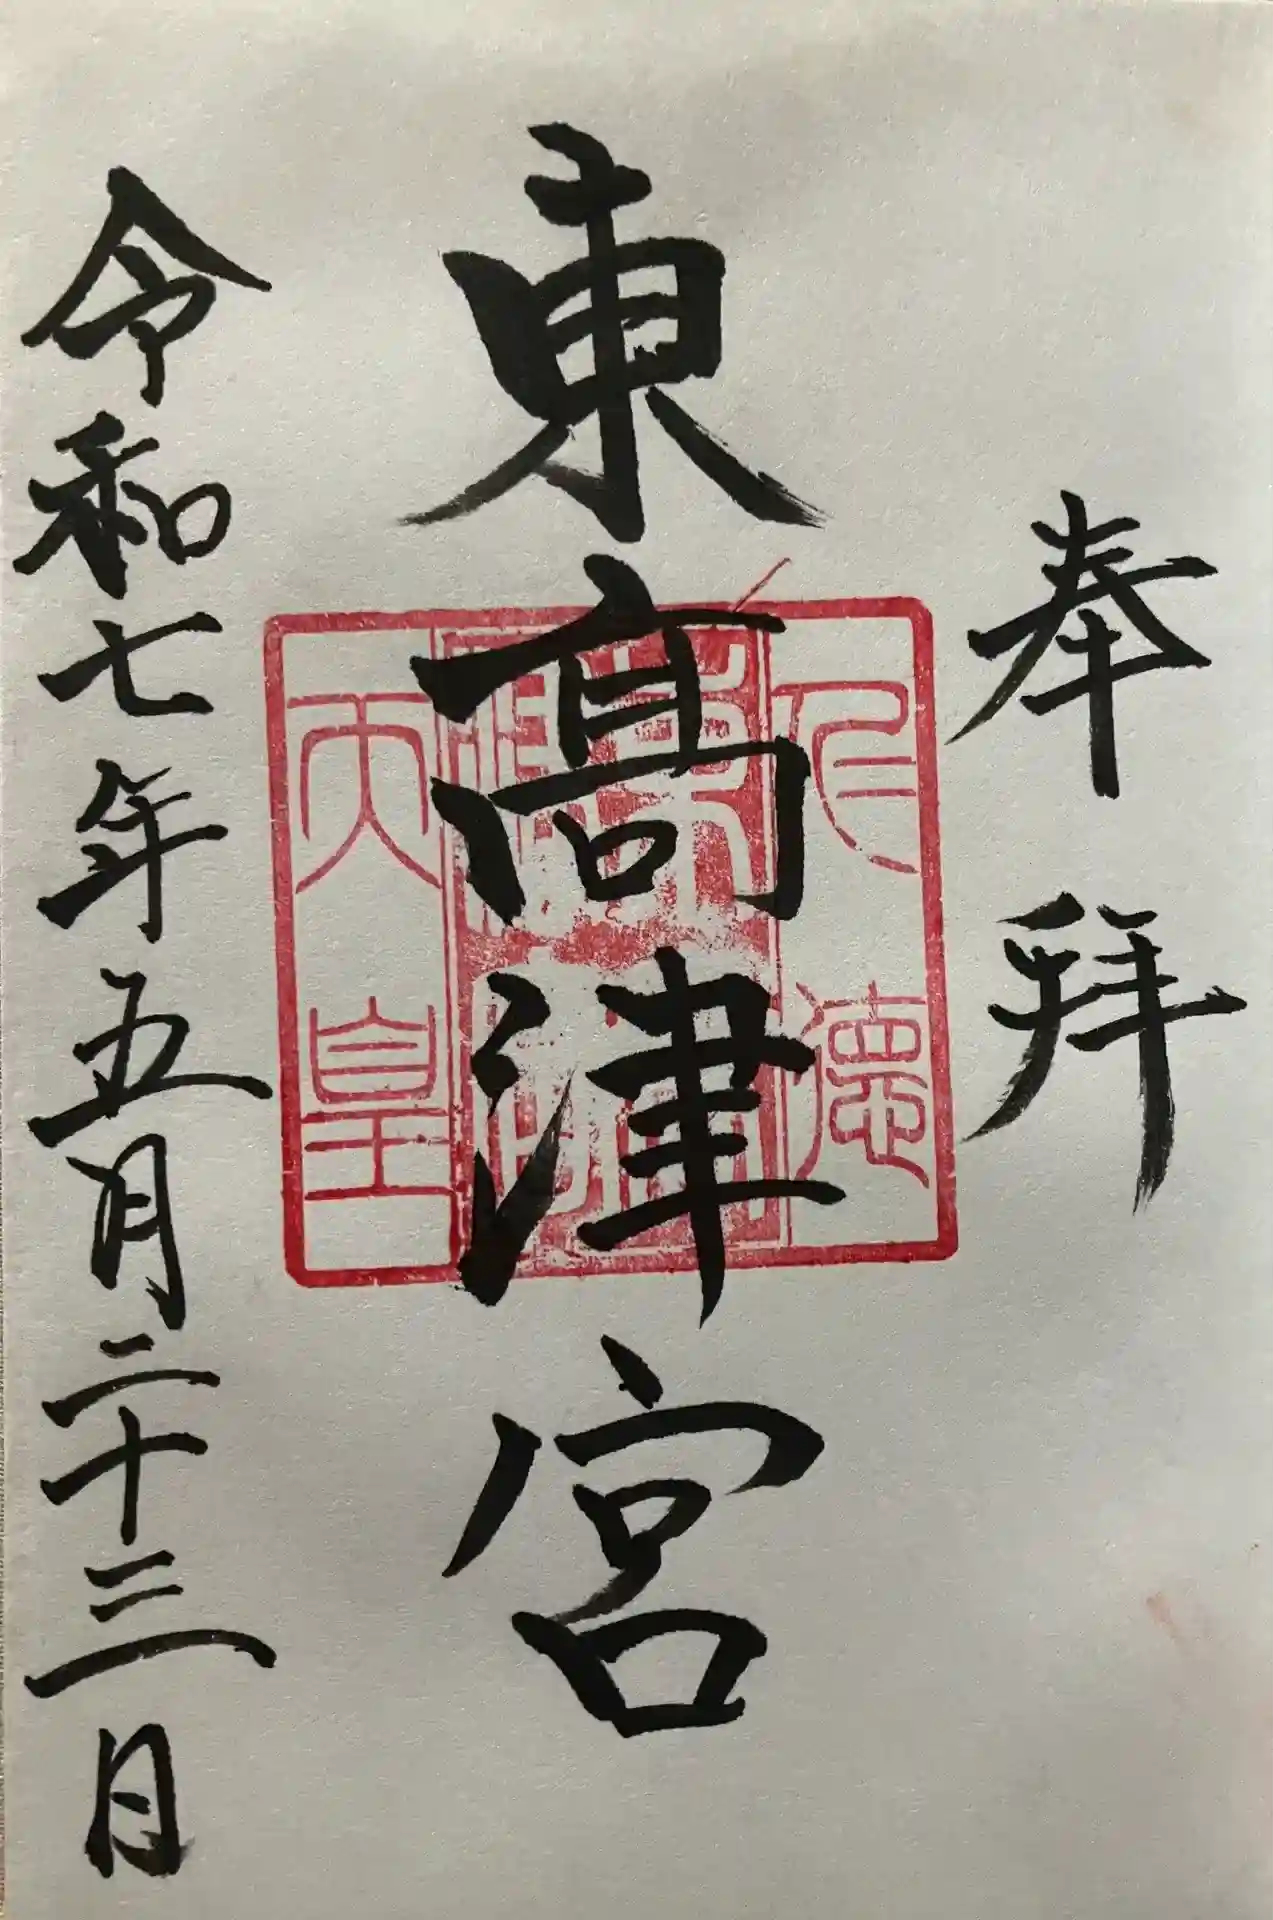 奉拜
東髙津宮
仁德
天皇
令和七年五月二十三日